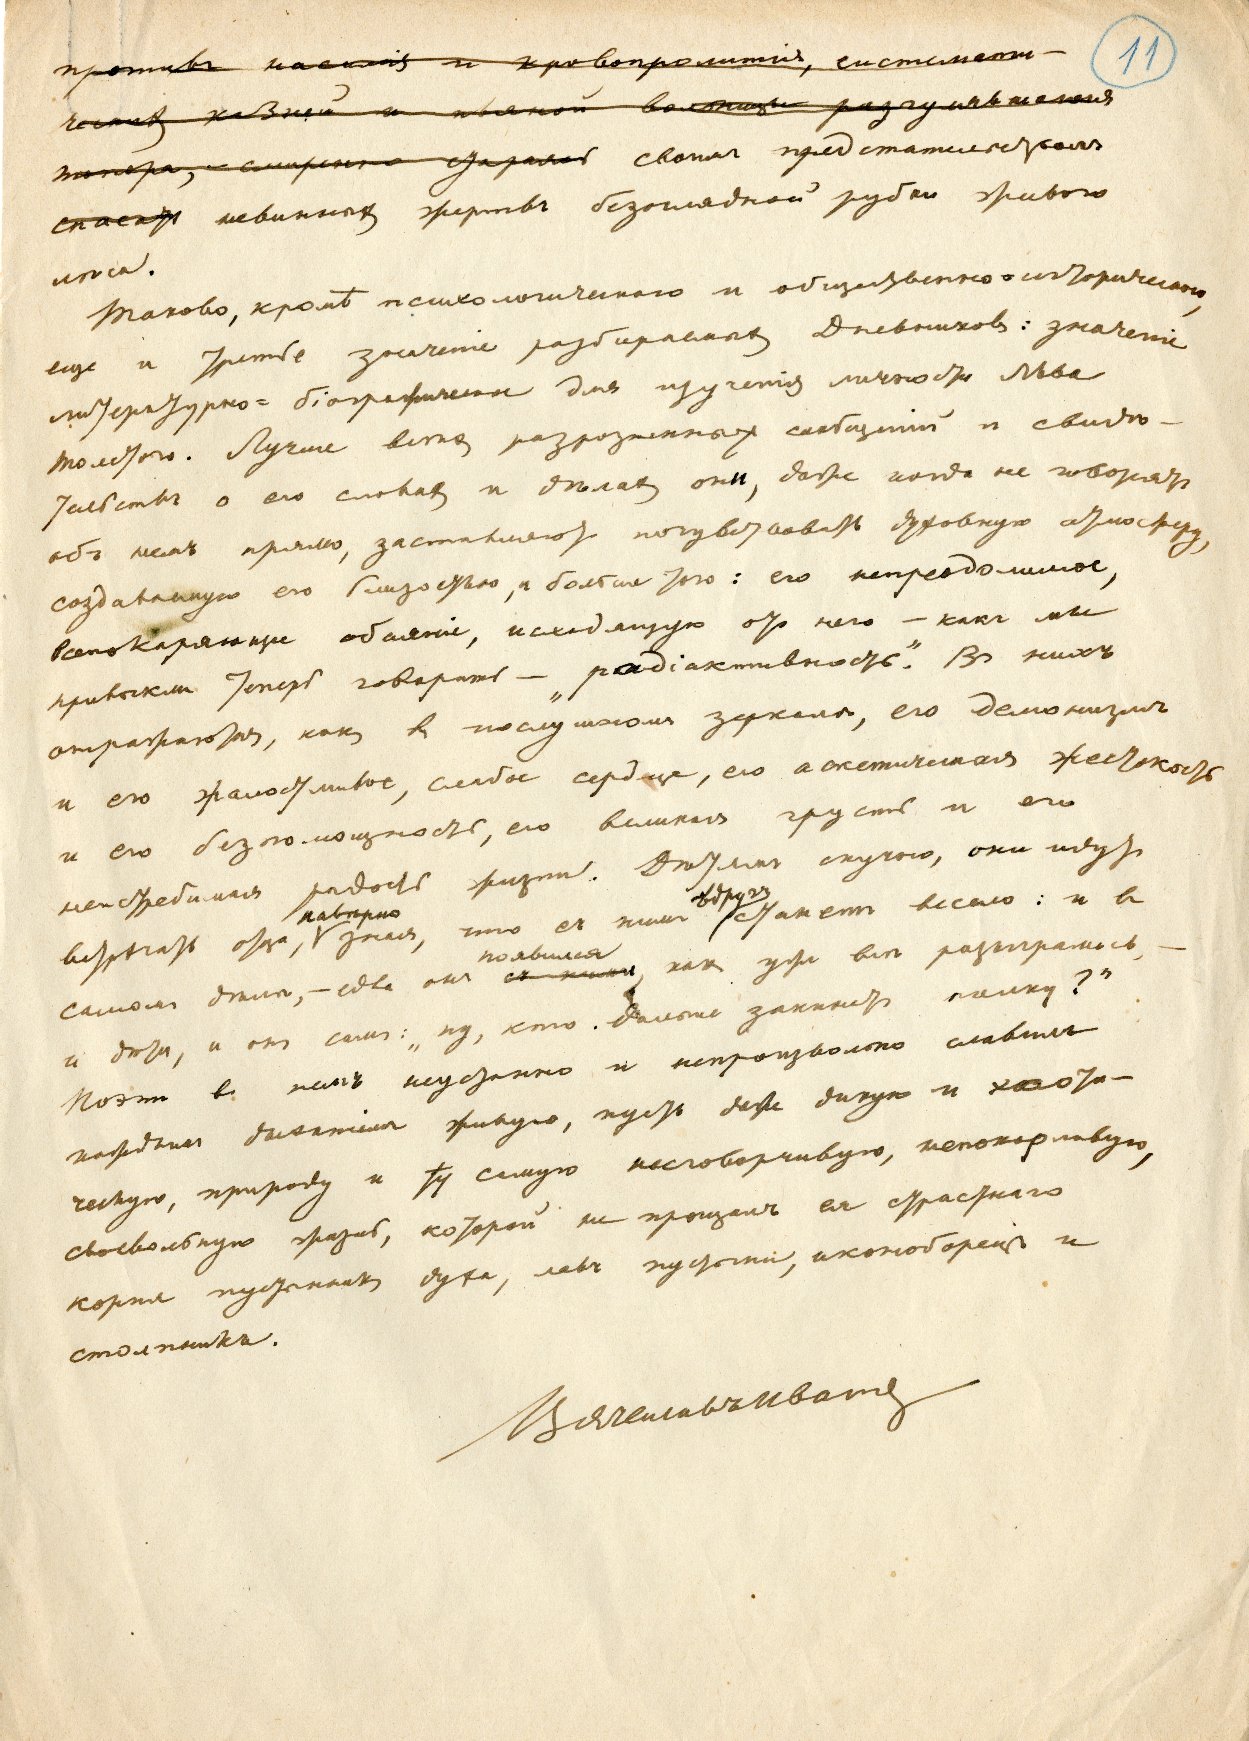 11
противъ насилія и кровопролитія, система‑
ческихъ казней и пьяной вольницы разгулявшагося
топора, – смиренно старался своимъ предстательствомъ
спасать невинныхъ жертвъ безоглядной рубки живого
лѣса.
Таково, кромѣ психологическаго и общественно-историческаго,
еще и третье значеніе разбираемыхъ Дневниковъ: значеніе
литературно-біографическое для изученія личности Льва
Толстого. Лучше всѣхъ разрозненныхъ сообщеній и свидѣ-
тельствъ о его словахъ и дѣлахъ они, даже когда не говорятъ
объ немъ прямо, заставляютъ почувствовать духовную атмосферу,
создаваемую его близостью, и болѣе того: его непреодолимое,
всепокоряющее обаяніе, исходящую отъ него – какъ мы
привыкли теперь говорить – „радіактивность". Въ нихъ
отражаются, какъ въ послушномъ зеркалѣ, его демонизмъ
и его жалостливое, слабое сердце, его аскетическая жестокость
и его безпомощность, его великая грусть и его
неистребимая радость жизни. Дѣтямъ скучно, они идутъ
встрѣчать отца, навѣрно зная, что съ нимъ вдругъ станетъ весело: и въ
самомъ дѣлѣ, – едва онъ съ ними появился, какъ уже всѣ разыгрались, –
и дѣти, и онъ самъ: „ну, кто дальше закинетъ палку?"
Поэтъ въ немъ неустанно и непроизвольно славилъ
каждымъ дыханіемъ живую, пусть даже дикую и хаоти-
ческую, природу и ту самую несговорчивую, непокорливую,
своевольную жизнь, которой не прощалъ ея страстнаго
корня пустынникъ духа, левъ пустыни, иконоборецъ и
столпникъ.
Вячеславъ Ивановъ